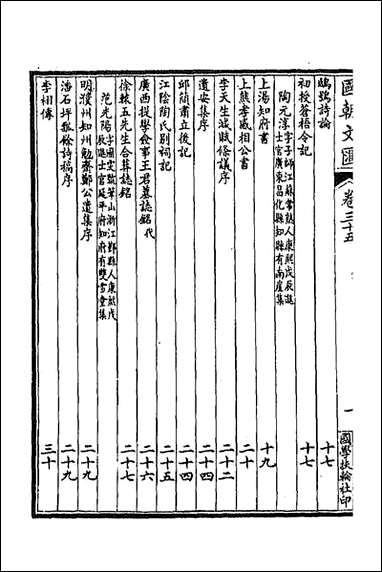 國朝文匯 卷三十五 一 國學扶輪社印
鴟鴞詩論 十七
初授蒼梧令記 十七
陶元淳 字子師江蘇常熟人康熙戊辰進士官廣東昌化縣知縣有南崖集
上湯知府書 十九
上熊孝感相公書 二十
李天生減賦條議序 二十二
遺安集序 二十四
邱蔄肅立後記 二十四
江陰陶氏別祠記 二十五
廣西提學僉事王君墓誌銘 代 二十六
徐轅五先生合葬誌銘 二十七
范光陽 字國雯號筆山浙江鄞縣人康熙戊辰進士官延平府知府有雙雲堂集
明濮州知州勉齋鄭公遺集序 二十九
潘石坪瓠餘詩稿序 二十九
李相傳 三十